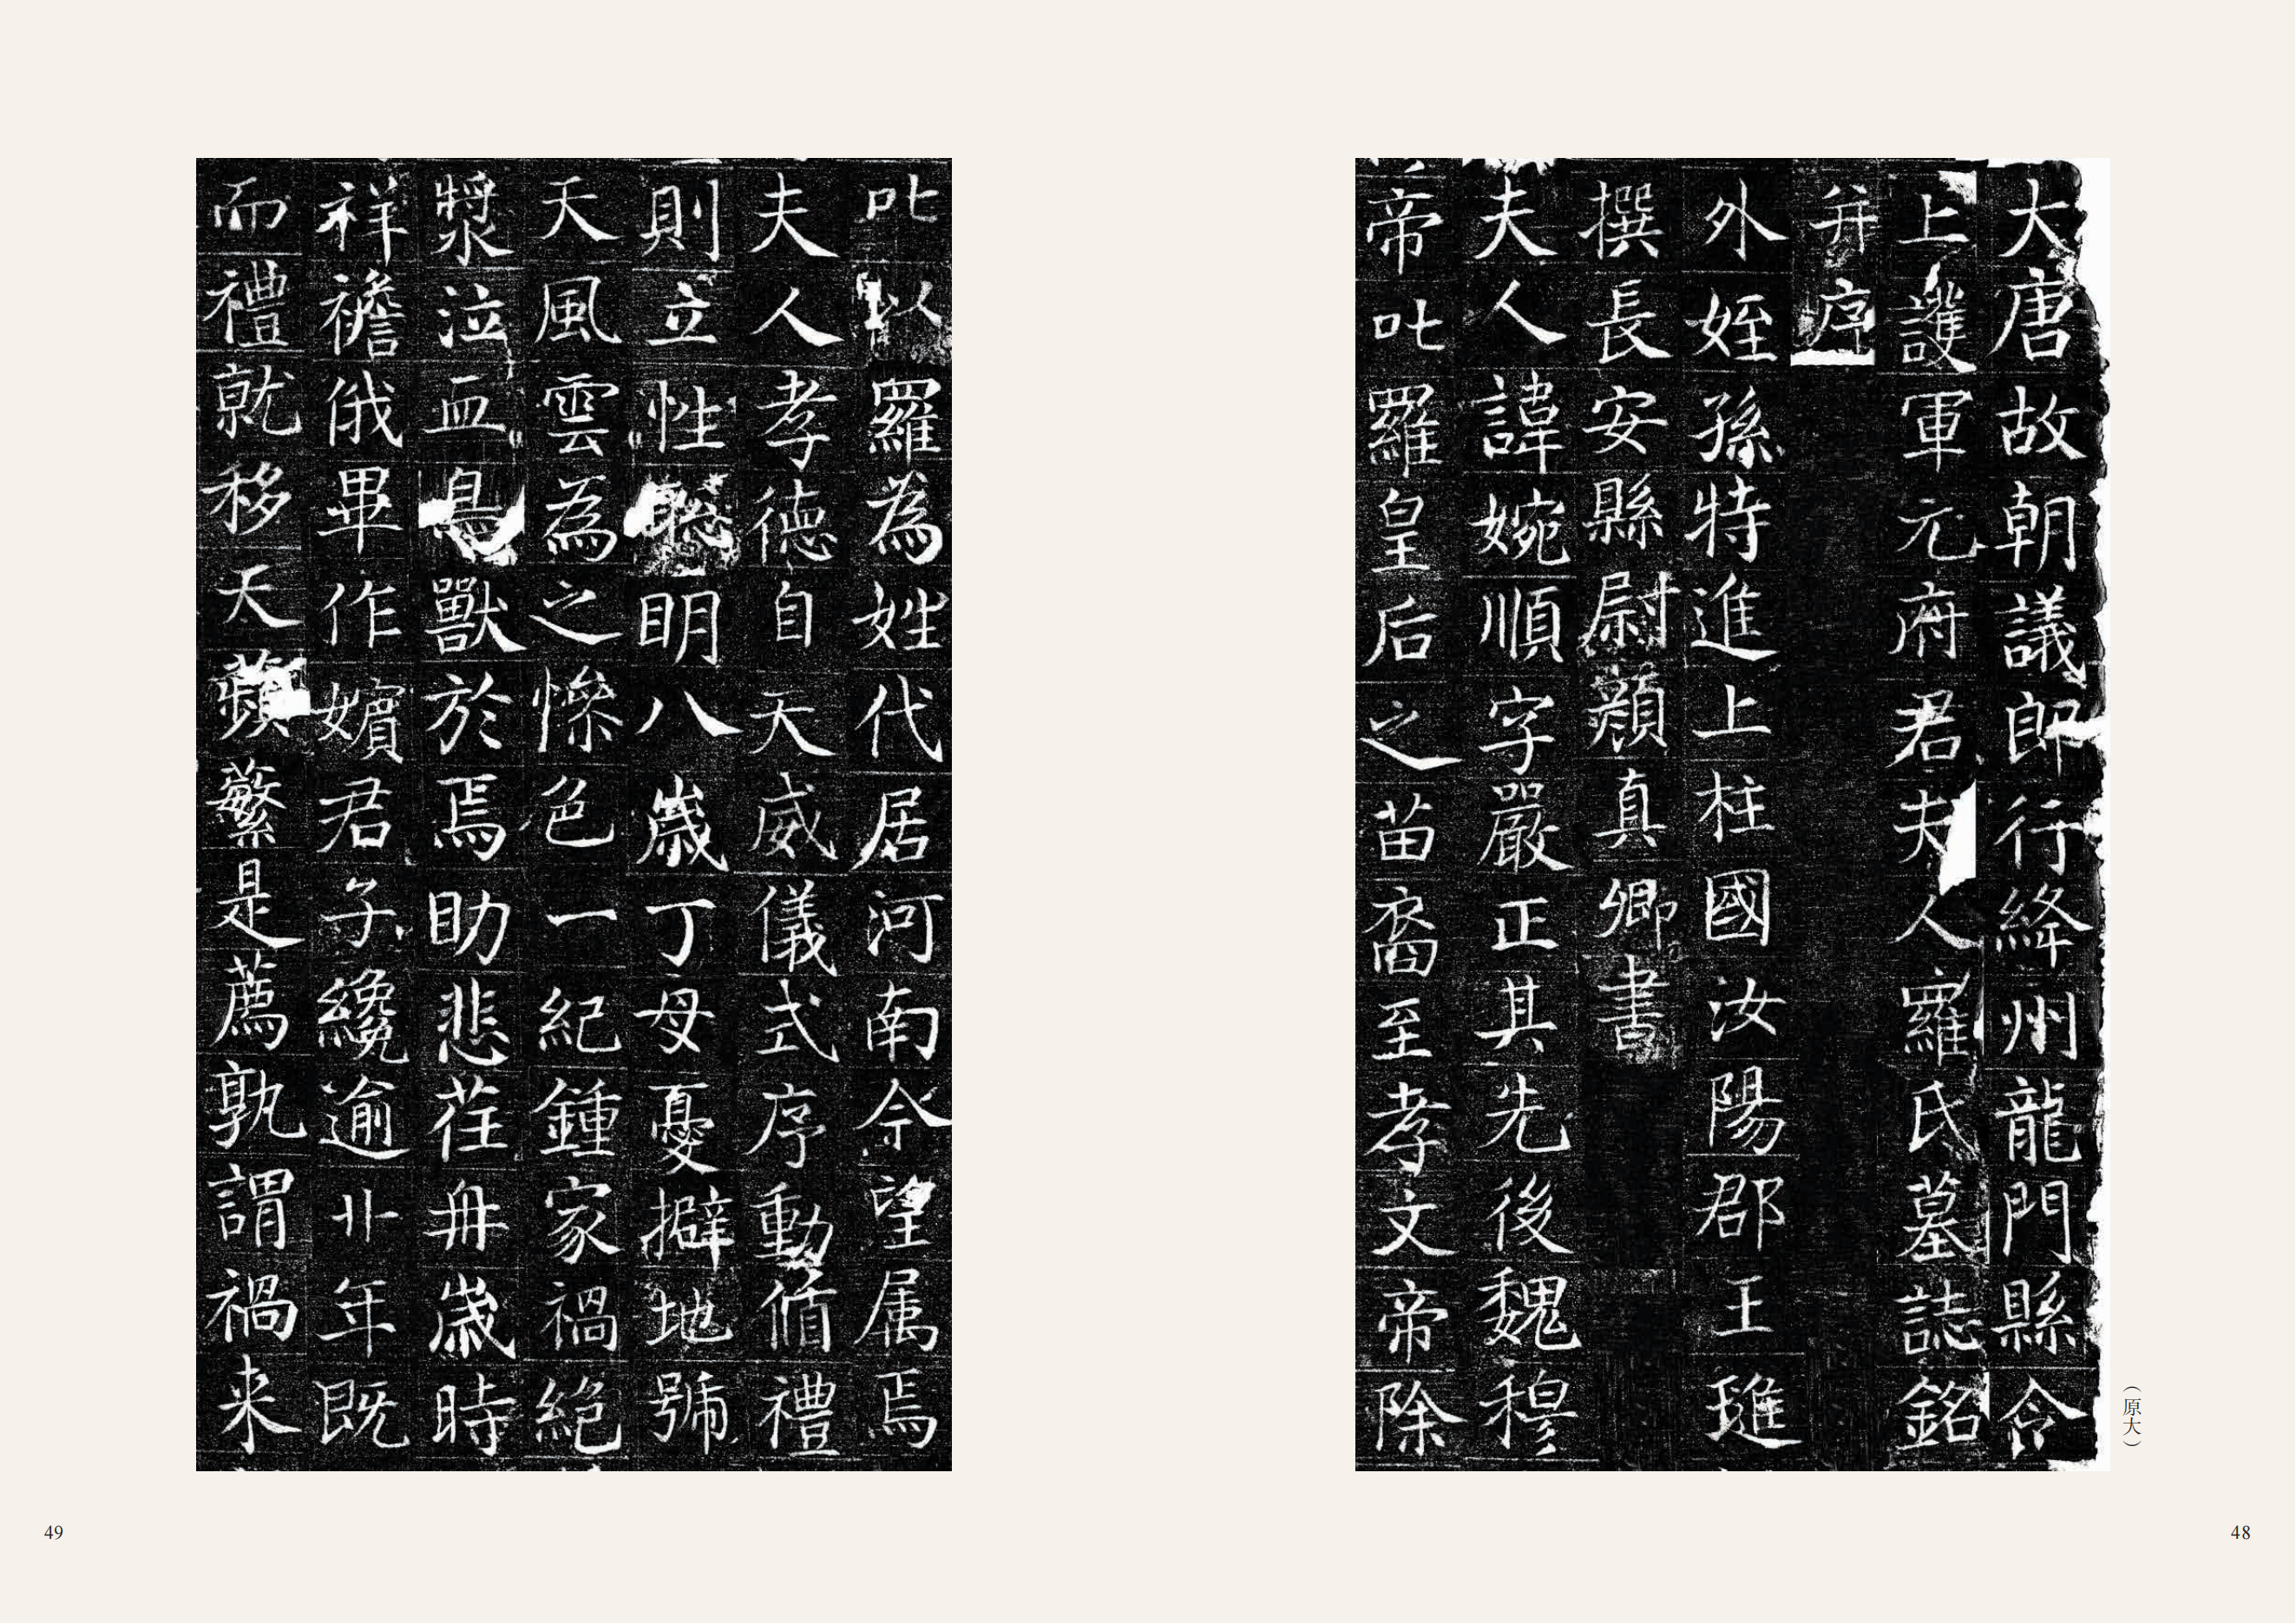 大唐故朝議郎行絳州龍門縣令
上護軍元府君夫人羅氏墓誌銘
并序
外姪孫特進上柱國汝陽郡王璡
撰長安縣尉顏真卿書
夫人諱婉順字嚴正其先後魏穆
帝叱羅皇后之苗裔至孝文帝除
(原大)
48
叱以羅為姓代居河南今望属焉
夫人孝德自天威儀式序動脩禮
則立性聰明八歲丁母憂擗地號
天風雲為之慘色一紀鍾家禍絕
漿泣血鳥獸於焉助悲荏苒歲時
祥禫俄畢作嬪君子纔逾廿年既
而禮就移天蘋蘩是薦孰謂禍来
49